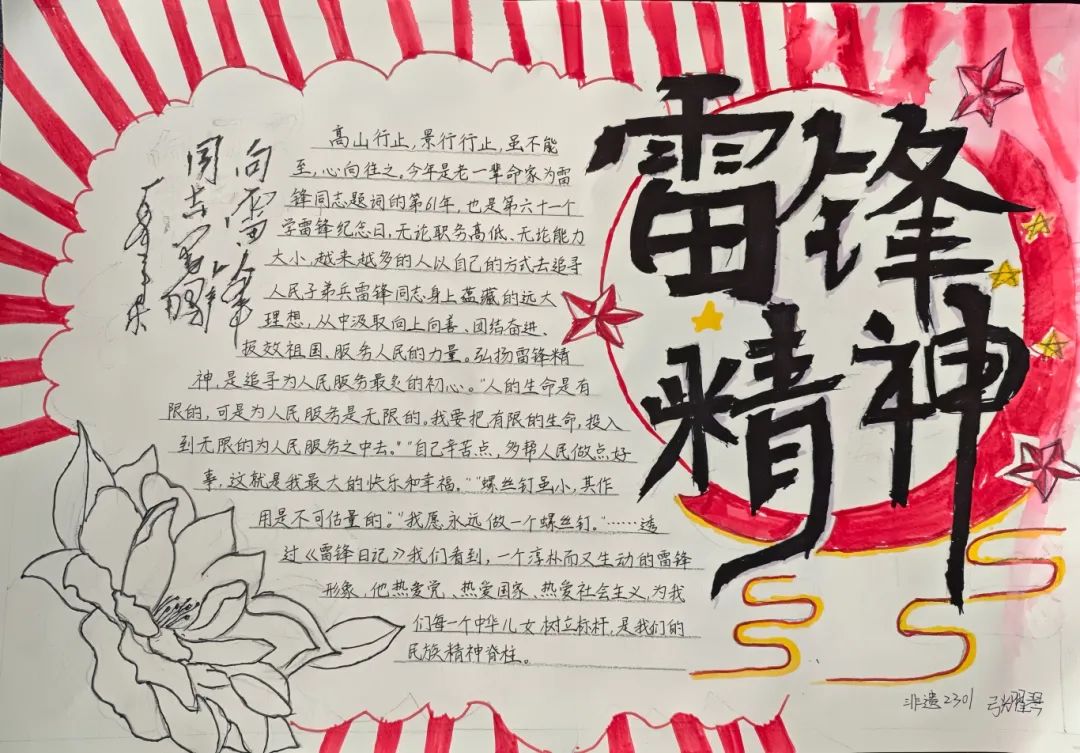 雷锋
精神
向雷锋
同志学习
毛泽东
高山行止，景行行止，虽不能
至，心向往之。今年是老一辈命家为雷
锋同志题词的第61年，也是第六十一个
学雷锋纪念日，无论职务高低、无论能力
大小，越来越多的人以自己的方式去追寻
人民子弟兵雷锋同志身上蕴藏的远大
理想，从中汲取向上向善、团结奋进、
报效祖国、服务人民的力量。弘扬雷锋精
神，是追寻为人民服务最炙的初心。“人的生命是有
限的，可是为人民服务是无限的。我要把有限的生命，投入
到无限的为人民服务之中去。”“自己辛苦点，多帮人民做点好
事，这就是我最大的快乐和幸福。”“螺丝钉虽小，其作
用是不可估量的。”“我愿永远做一个螺丝钉。”……透
过《雷锋日记》我们看到，一个淳朴而又生动的雷锋
形象，他热爱党、热爱国家、热爱社会主义，为我
们每一个中华儿女树立标杆，是我们的
民族精神脊柱。
非遗2301 弓耀琴